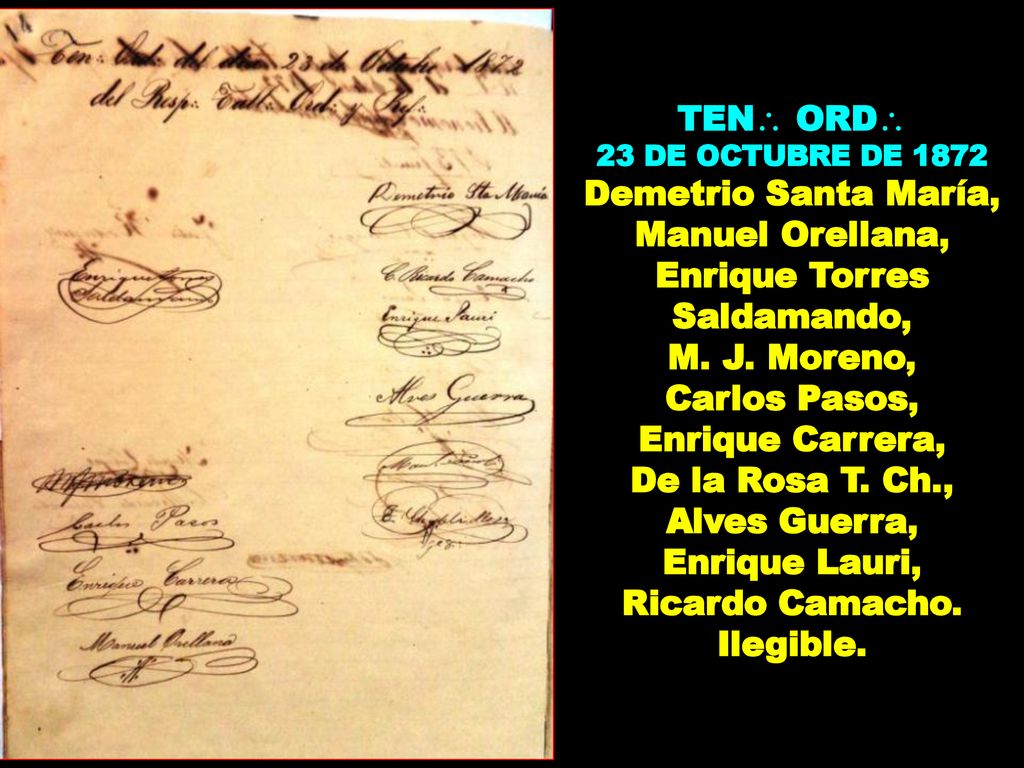 14
Ten∴ Ord∴ del dia 23 de Octubre 1872
del Resp∴ Tall∴ Ord∴ y
Demetrio Sta Maria
Enrique Torres
Saldamando
C. Ricardo Camacho
Enrique Lauri
Alves Guerra
M J Moreno
Carlos Pasos
Enrique Carrera
Manuel Orellana
TEN∴ ORD∴
23 DE OCTUBRE DE 1872
Demetrio Santa María,
Manuel Orellana,
Enrique Torres
Saldamando,
M. J. Moreno,
Carlos Pasos,
Enrique Carrera,
De la Rosa T. Ch.,
Alves Guerra,
Enrique Lauri,
Ricardo Camacho.
Ilegible.